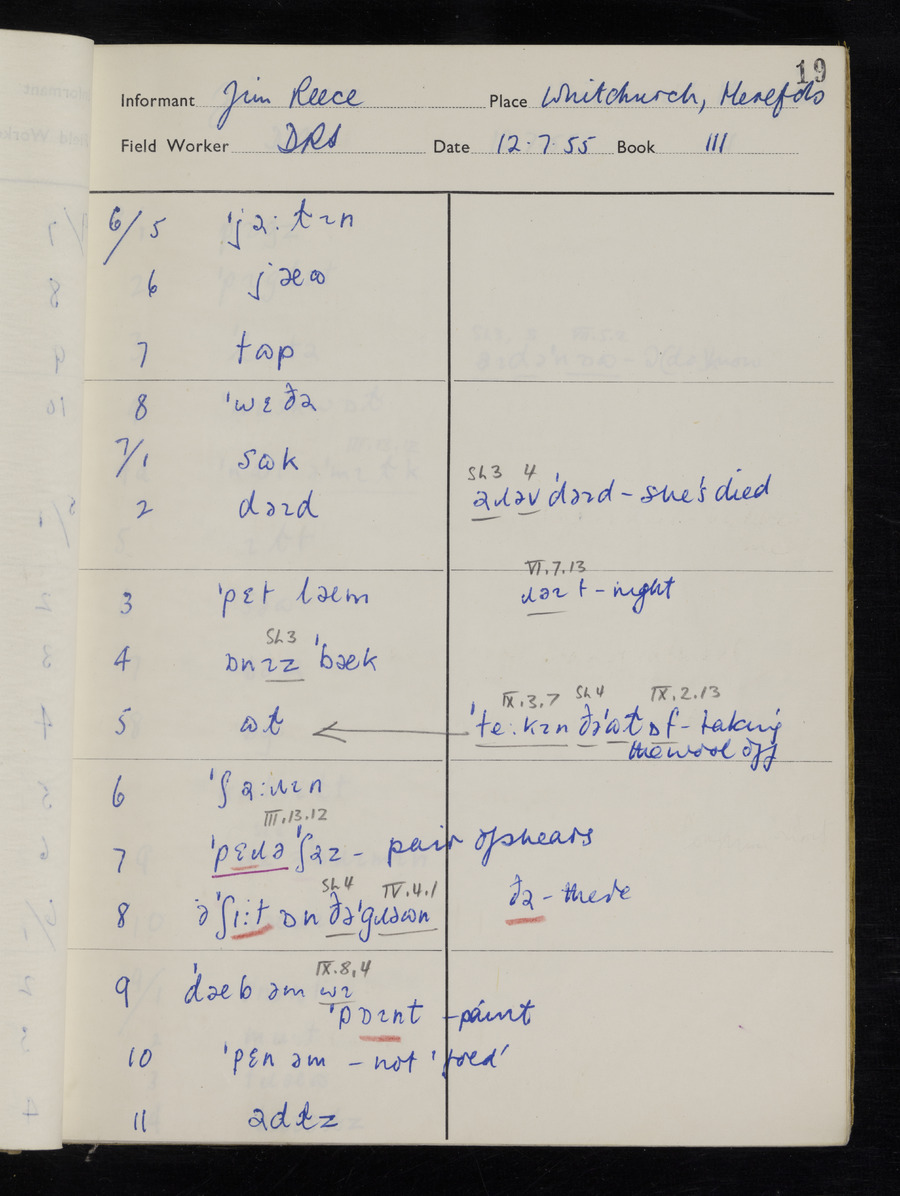 19
Informant Jim Reece Place Whitchurch, Herefds
Field Worker DRS Date 12.7.55 Book III
6/5 ˈjəːtɪn
6 jæω
7 tωp
8 ˈwɛðə
7/1 sωk
2 dəɪd
Sh3 4
əɹəv ˈdəɪd – she's died
VI.7.13
3 ˈpɛt læm
ɹəɪt – right
Sh3
4 ɒn ɪz ˈbæk
IX.3.7 Sh4 IX.2.13
5 ωɫ
ˈteːkɪn ðəˈωɫ ɒf – taking
the wool off
6 ˈʃəːɹɪn
III.13.12
7 ˈpɛɹə ˈʃəz – pair of shears
Sh4 IV.4.1
8 əˈʃiːt ɒn ðəˈgɹəωn
ðə – there
IX.8.4
9 ˈdæb əm wɪ
ˈpɒɪnt – paint
10 ˈpɛn əm – not
11 ədɫz